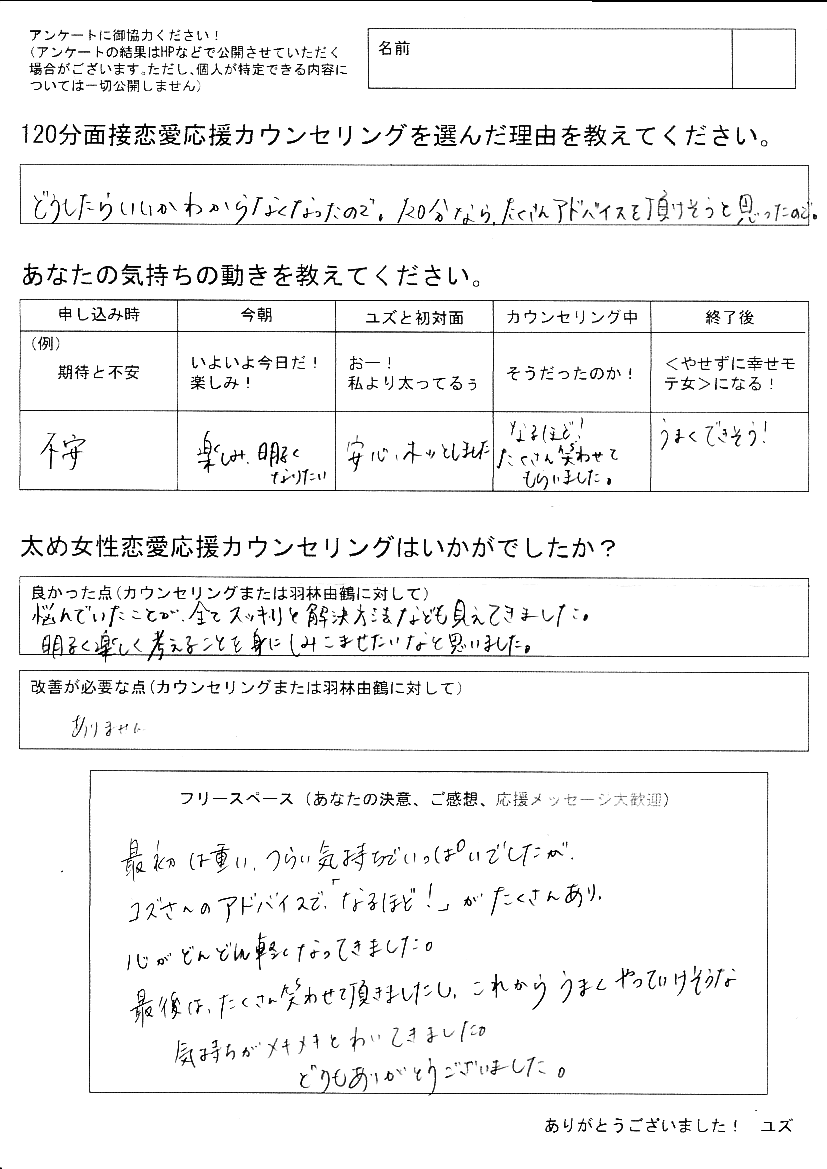 アンケートに御協力ください！
（アンケートの結果はHPなどで公開させていただく
場合がございます。ただし、個人が特定できる内容に
ついては一切公開しません）
名前
120分面接恋愛応援カウンセリングを選んだ理由を教えてください。
どうしたらいいかわからなくなったので。120分なら、たくさんアドバイスを頂けそうと思ったので。
あなたの気持ちの動きを教えてください。
申し込み時 今朝 ユズと初対面 カウンセリング中 終了後
（例）
期待と不安
いよいよ今日だ！
楽しみ！
おー！
私より太ってるぅ
そうだったのか！
＜やせずに幸せモ
テ女＞になる！
不安
楽しみ、明るく
なりたい
安心、ホッとしました
なるほど！
たくさん笑わせて
もらいました。
うまくできそう！
太め女性恋愛応援カウンセリングはいかがでしたか？
良かった点（カウンセリングまたは羽林由鶴に対して）
悩んでいたことが、全てスッキリと解決方法なども見えてきました。
明るく楽しく考えることを身にしみこませたいなと思いました。
改善が必要な点（カウンセリングまたは羽林由鶴に対して）
ありません
フリースペース（あなたの決意、ご感想、応援メッセージ大歓迎）
最初は重い、つらい気持ちでいっぱいでしたが、
ユズさんのアドバイスで、「なるほど！」がたくさんあり、
心がどんどん軽くなってきました。
最後は、たくさん笑わせて頂きましたし、これからうまくやっていけそうな
気持ちがメキメキとわいてきました。
どうもありがとうございました。
ありがとうございました！ ユズ